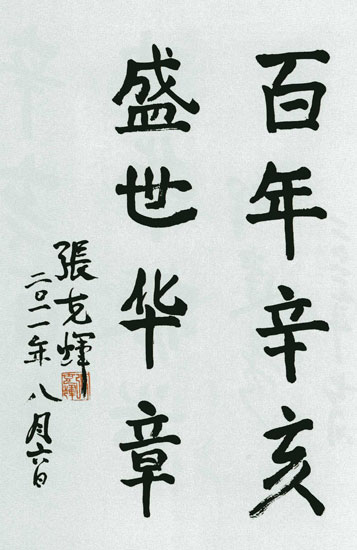 百年辛亥
盛世华章
張克輝
二〇一一年八月六日